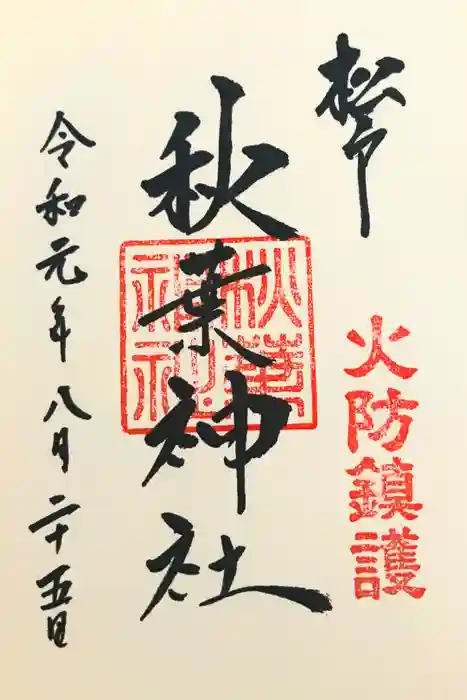 火防鎮護
秋葉神社
秋葉
神社
令和元年八月二十五日